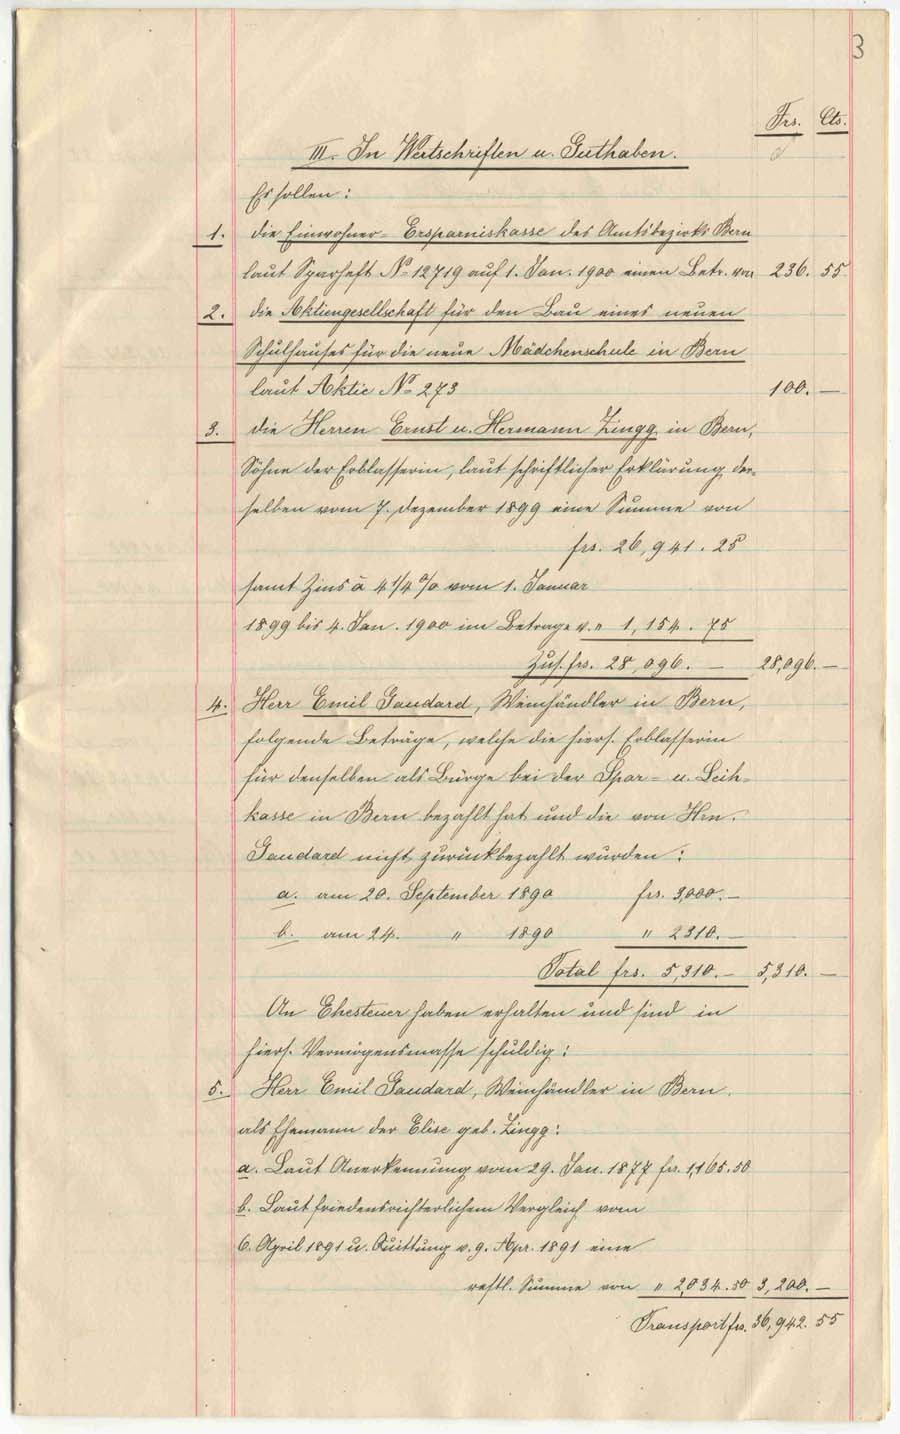 3
Frs. Cts.
III. In Wertschriften u. Guthaben.
Es sollen:
1. die Einwohner-Ersparniskasse des Amtsbezirks Bern
laut Sparheft No 12719 auf 1. Jan. 1900 einen Betr. von 236. 55
2. die Aktiengesellschaft für den Bau eines neuen
Schulhauses für die neue Mädchenschule in Bern
laut Aktie No 273 100. —
3. die Herren Ernst u. Hermann Zingg in Bern,
Söhne der Erblasserin, laut schriftlicher Erklärung der-
selben vom 7. Dezember 1899 eine Summe von
frs. 26,941. 25
samt Zins à 4 1/4 % vom 1. Januar
1899 bis 4. Jan. 1900 im Betrage v. " 1,154. 75
Zus. frs. 28,096. — 28,096. —
4. Herr Emil Gaudard, Weinhändler in Bern,
folgende Beträge, welche die hiers. Erblasserin
für denselben als Bürge bei der Spar- u. Leih-
kasse in Bern bezahlt hat und die von Hrn.
Gaudard nicht zurückbezahlt wurden:
a. am 20. September 1890 frs. 3,000. —
b. am 24. " 1890 " 2310. —
Total frs. 5,310. — 5,310. —
An Ehesteuer haben erhalten und sind in
hiers. Vermögensmasse schuldig:
5. Herr Emil Gaudard, Weinhändler in Bern.
als Ehemann der Elise geb. Zingg:
a. Laut Anerkennung vom 29. Jan. 1877 fr. 1,165.50
b. Laut friedensrichterlichem Vergleich vom
6. April 1891 u. Quittung v. 9. Apr. 1891 eine
restl. Summe von " 2,034.50 3,200. —
Transport frs. 36,942. 55